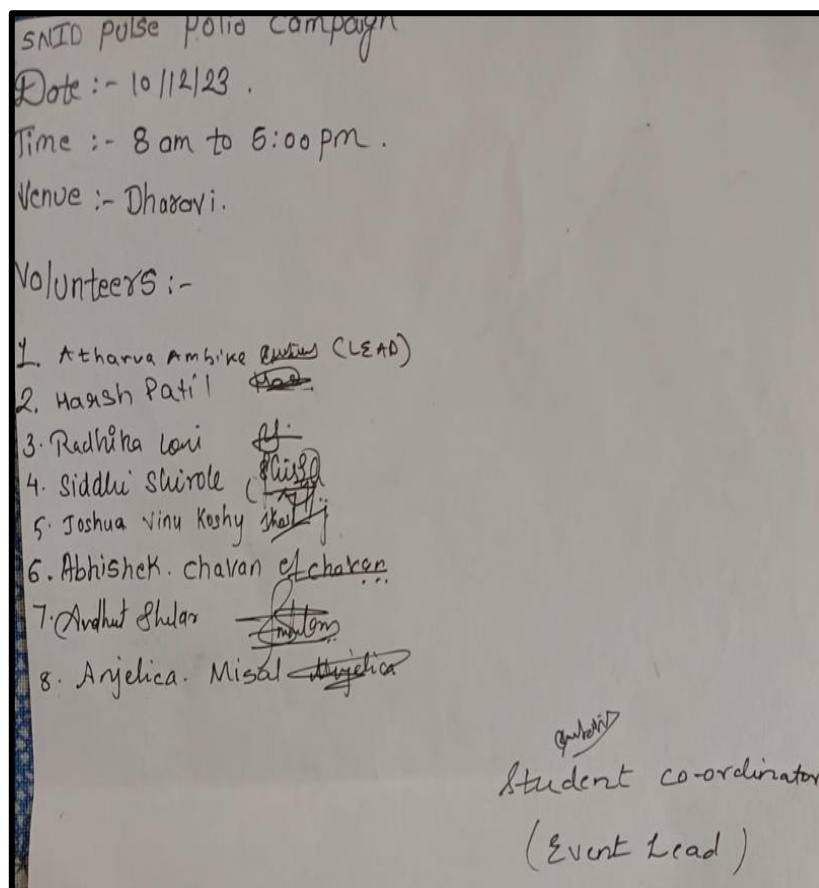 SNID Pulse Polio Campaign
Date :- 10/12/23 .
Time :- 8 am to 5:00 pm .
Venue :- Dharavi.
Volunteers :-
1. Atharva Ambike (LEAD)
2. Harsh Patil
3. Radhika Loni
4. Siddhi Shirole
5. Joshua Vinu Koshy
6. Abhishek. Chavan
7. Avdhut Shelar
8. Anjelica. Misal Anjelica
Student co-ordinator
(Event Lead)